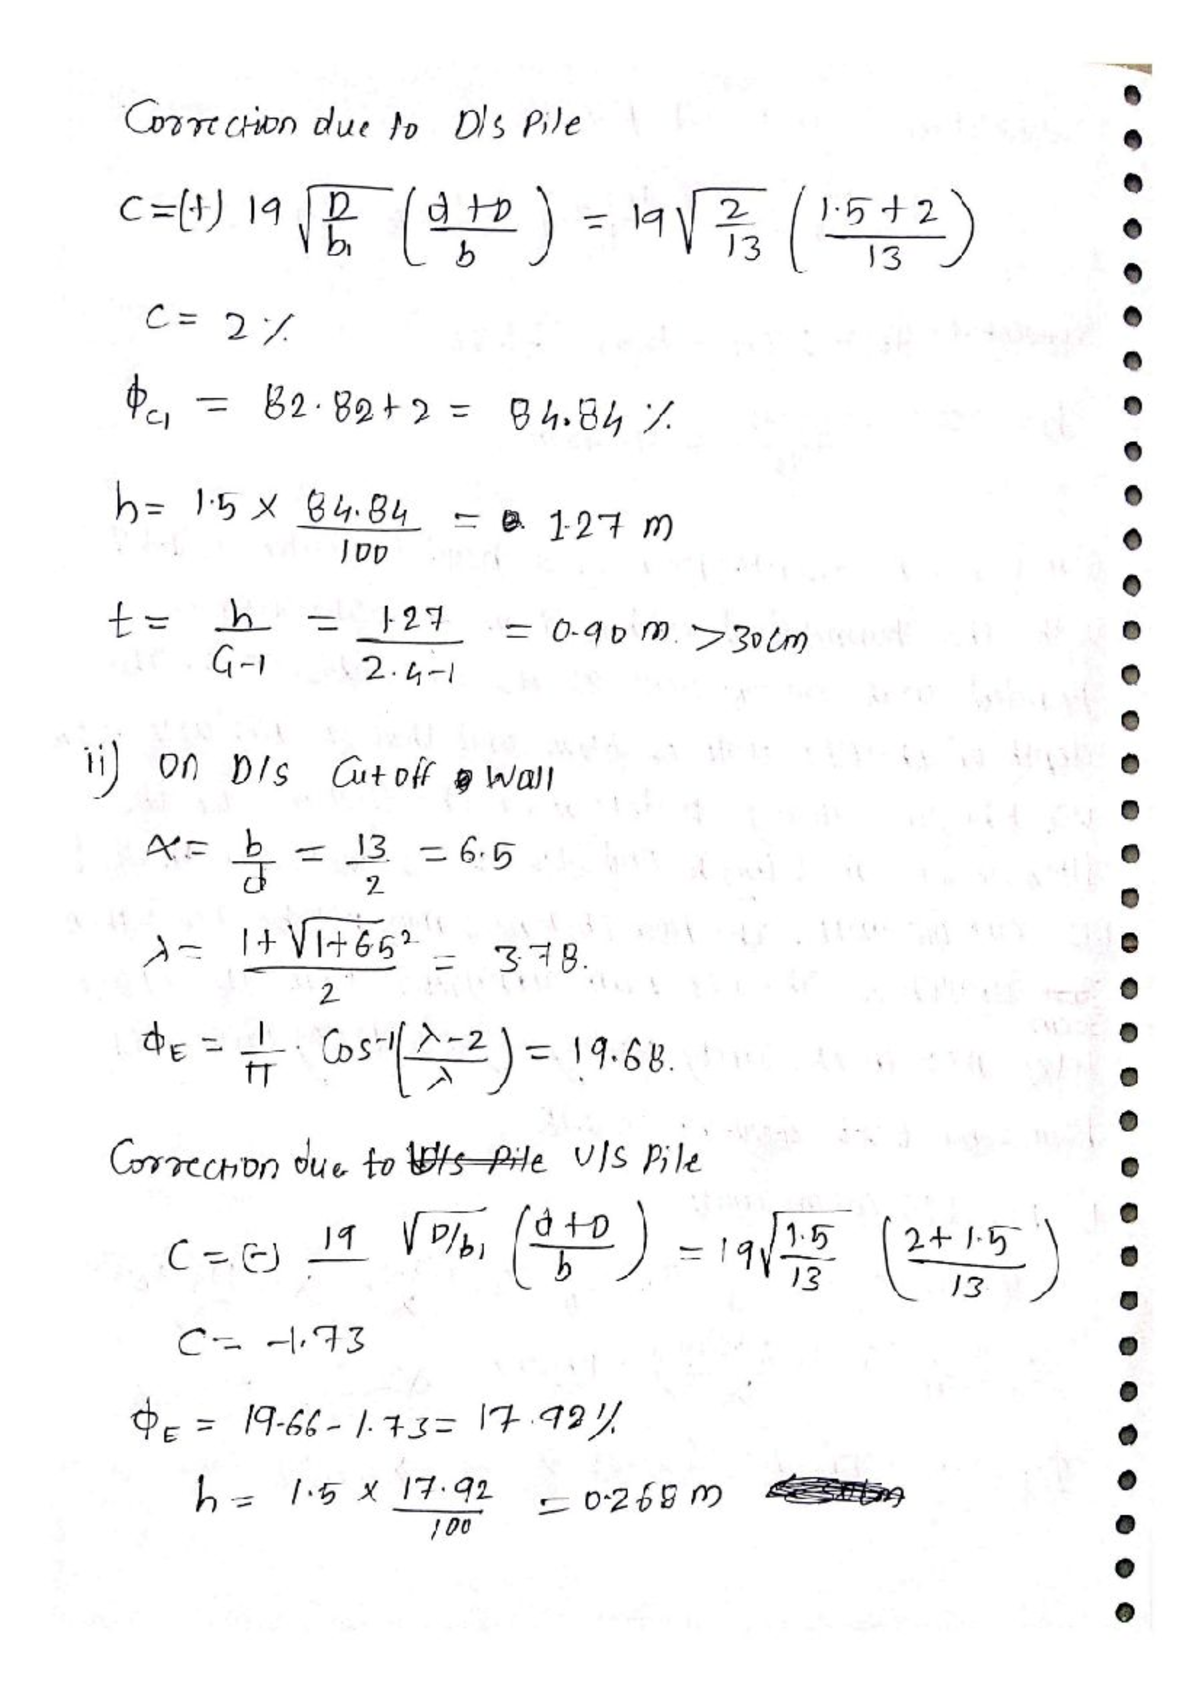 Correction due to D/s Pile
C=(+) 19 √(D/b₁) ((d+D)/b) = 19 √(2/13) ((1.5+2)/13)
C= 2 %
ϕC₁ = 82.82+2 = 84.84 %
h= 1.5 × 84.84/100 = 1.27 m
t= h/(G-1) = 1.27/(2.4-1) = 0.90 m. >30cm
ii) on D/s Cutoff Wall
α= b/d = 13/2 = 6.5
λ= (1+√(1+6.5²))/2 = 3.78.
ϕE = 1/π . Cos⁻¹((λ-2)/λ) = 19.68.
Correction due to U/s Pile U/s Pile
C=(-) 19 √(D/b₁) ((d+D)/b) = 19√(1.5/13) ((2+1.5)/13)
C= -1.73
ϕE = 19.66-1.73= 17.92%
h= 1.5 × 17.92/100 = 0.268 m